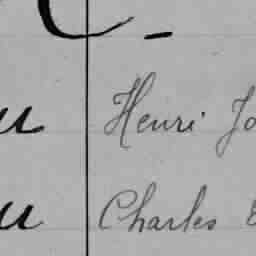 C.
u Henri Jo
u Charles E